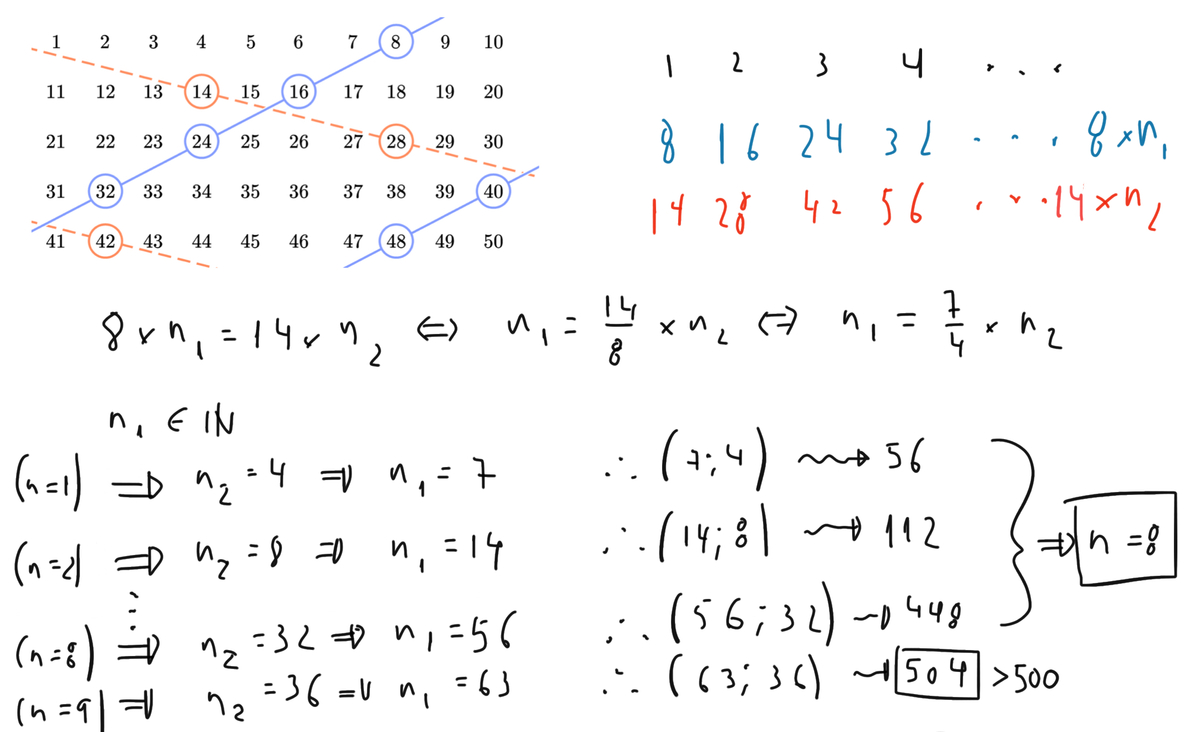 1 2 3 4 5 6 7 8 9 10
11 12 13 14 15 16 17 18 19 20
21 22 23 24 25 26 27 28 29 30
31 32 33 34 35 36 37 38 39 40
41 42 43 44 45 46 47 48 49 50
1 2 3 4 . . .
8 16 24 32 . . . 8 × n₁
14 28 42 56 . . . 14 × n₂
8 × n₁ = 14 × n₂ ⇔ n₁ = 14/8 × n₂ ⇔ n₁ = 7/4 × n₂
n₁ ∈ ℕ
(n=1) ⇒ n₂ = 4 ⇒ n₁ = 7 ∴ (7; 4) ⇝ 56
(n=2) ⇒ n₂ = 8 ⇒ n₁ = 14 ∴ (14; 8) ⇝ 112
⋮
(n=8) ⇒ n₂ = 32 ⇒ n₁ = 56 ∴ (56; 32) → 448
⇒ n = 8
(n=9) ⇒ n₂ = 36 ⇒ n₁ = 63 ∴ (63; 36) → 504 > 500